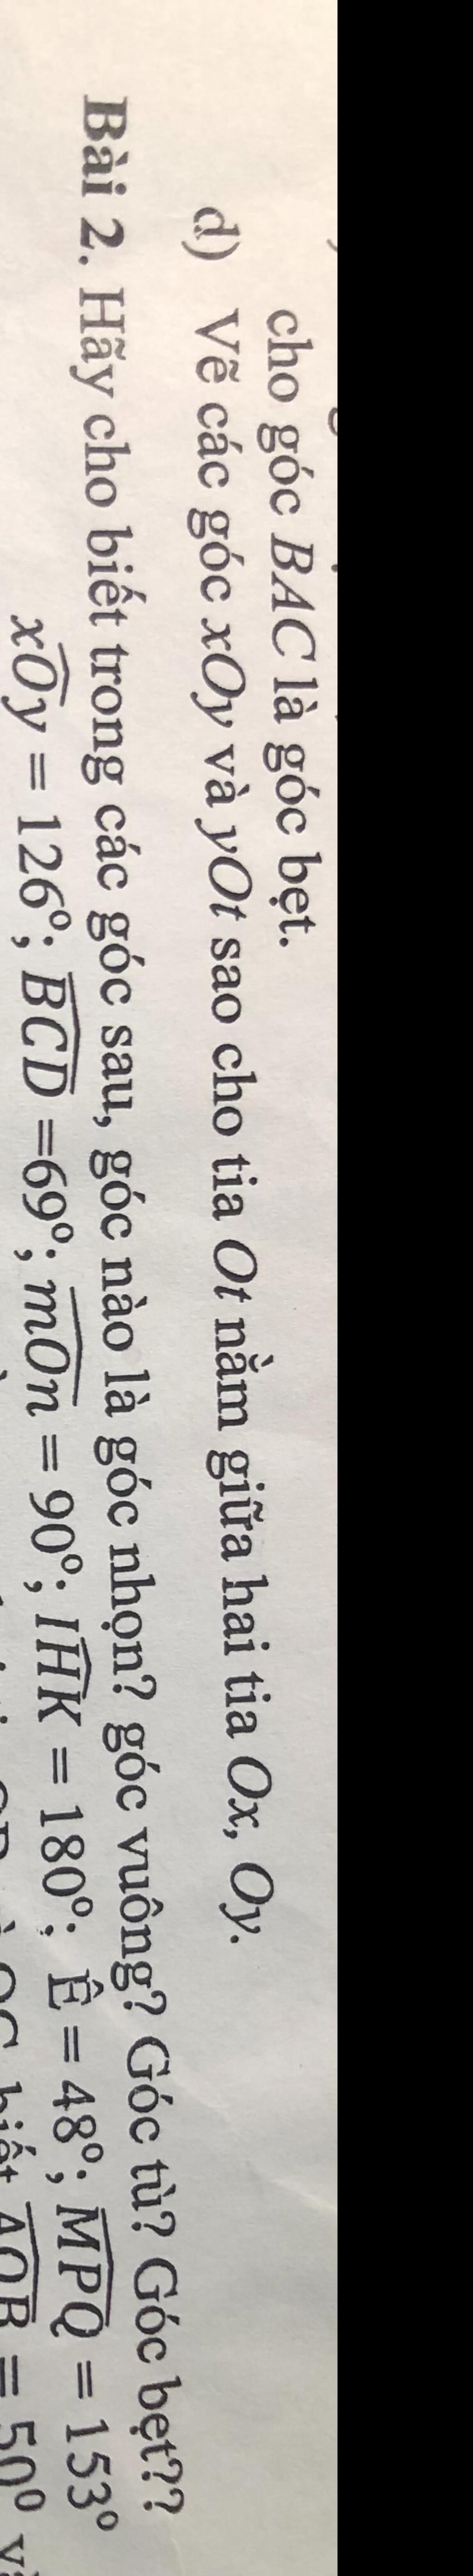 cho góc BAC là góc bẹt.
d) Vẽ các góc xOy và yOt sao cho tia Ot nằm giữa hai tia Ox, Oy.
Bài 2. Hãy cho biết trong các góc sau, góc nào là góc nhọn? góc vuông? Góc tù? Góc bẹt??
xÔy = 126⁰; B͡CD =69⁰; m͡On = 90⁰; IĤK = 180⁰; Ê = 48⁰; M͡PQ = 153⁰
biết A͡OB = 50⁰